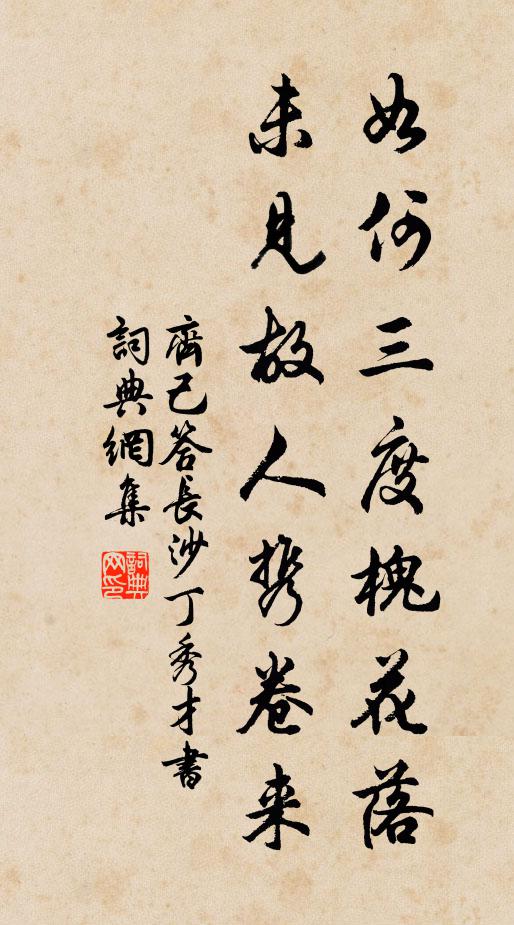 如何三度槐花落
未見故人携卷来
齊己答長沙丁秀才書
詞典網集
詞典
网印